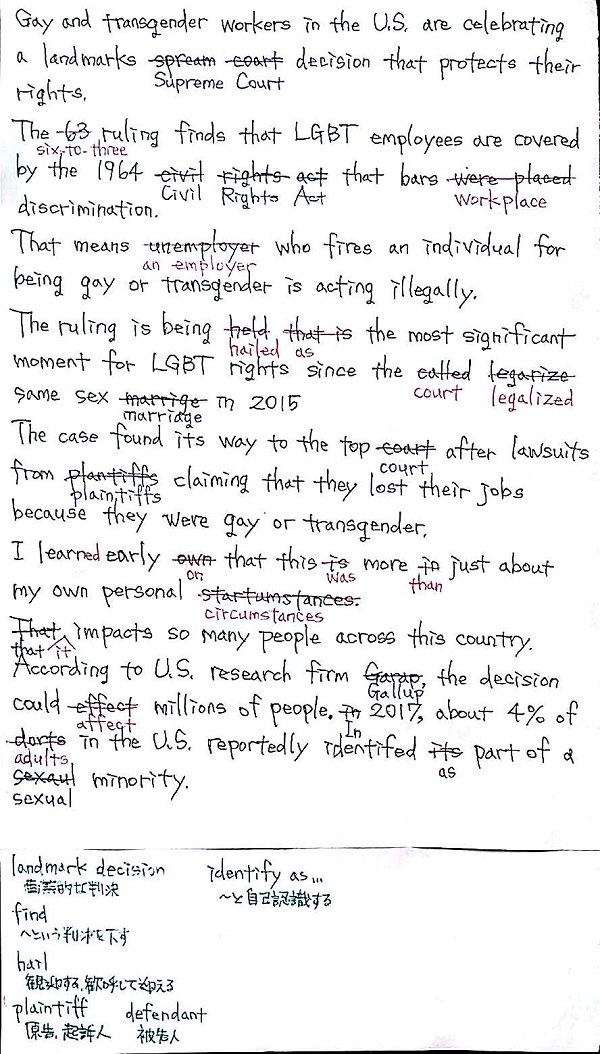 Gay and transgender workers in the U.S. are celebrating
a landmarks spream court decision that protects their
Supreme Court
rights.
The 63 ruling finds that LGBT employees are covered
six-to-three
by the 1964 civil rights act that bars were placed
Civil Rights Act workplace
discrimination.
That means unemployer who fires an individual for
an employer
being gay or transgender is acting illegally.
The ruling is being held that is the most significant
hailed as
moment for LGBT rights since the called legarize
court legalized
same sex marrige in 2015
marriage
The case found its way to the top court after lawsuits
court
from plantiffs claiming that they lost their jobs
plaintiffs
because they were gay or transgender.
I learned early own that this is more in just about
on was than
my own personal startumstances.
circumstances
That impacts so many people across this country.
that it
According to U.S. research firm Garap, the decision
Gallup
could effect millions of people. in 2017, about 4% of
affect In
dorts in the U.S. reportedly identifed its part of a
adults as
sexaul minority.
sexual
landmark decision identify as...
判決 〜と自己認識する
find
〜という判決を下す
hail
歓迎する, 歓呼して迎える
plaintiff defendant
原告, 起訴人 被告人